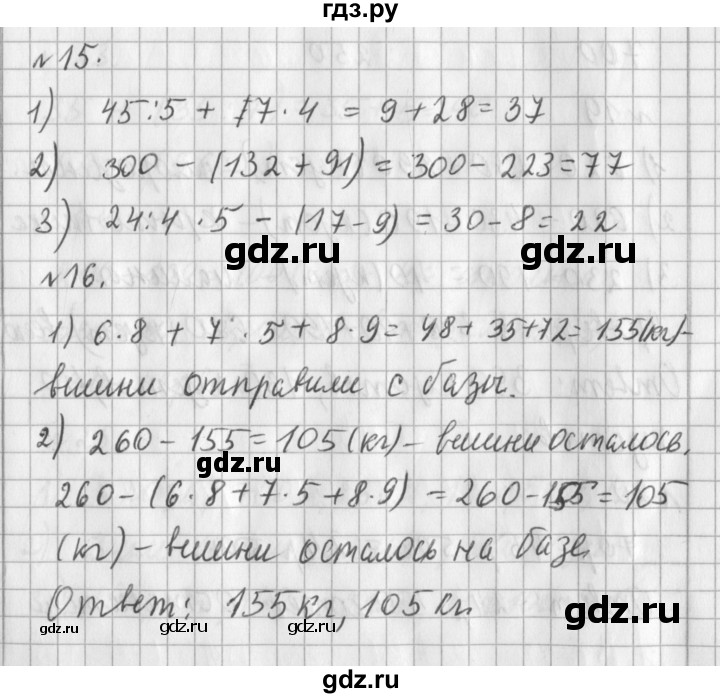 гдз.ру
№15.
1) 45:5 + 7·4 = 9+28=37
2) 300 - (132+91) = 300-223=77
3) 24:4·5 - (17-9) = 30-8=22
gdz.ru
№16.
1) 6·8 + 7·5 + 8·9 = 48+35+72=155(кг)-
вишни отправили с базы.
2) 260-155=105(кг)- вишни осталось.
gdz.ru
260-(6·8+7·5+8·9) = 260-155=105
(кг)- вишни осталось на базе.
Ответ: 155кг, 105кг.
gdz.ru gdz.ru gdz.ru
gdz.ru